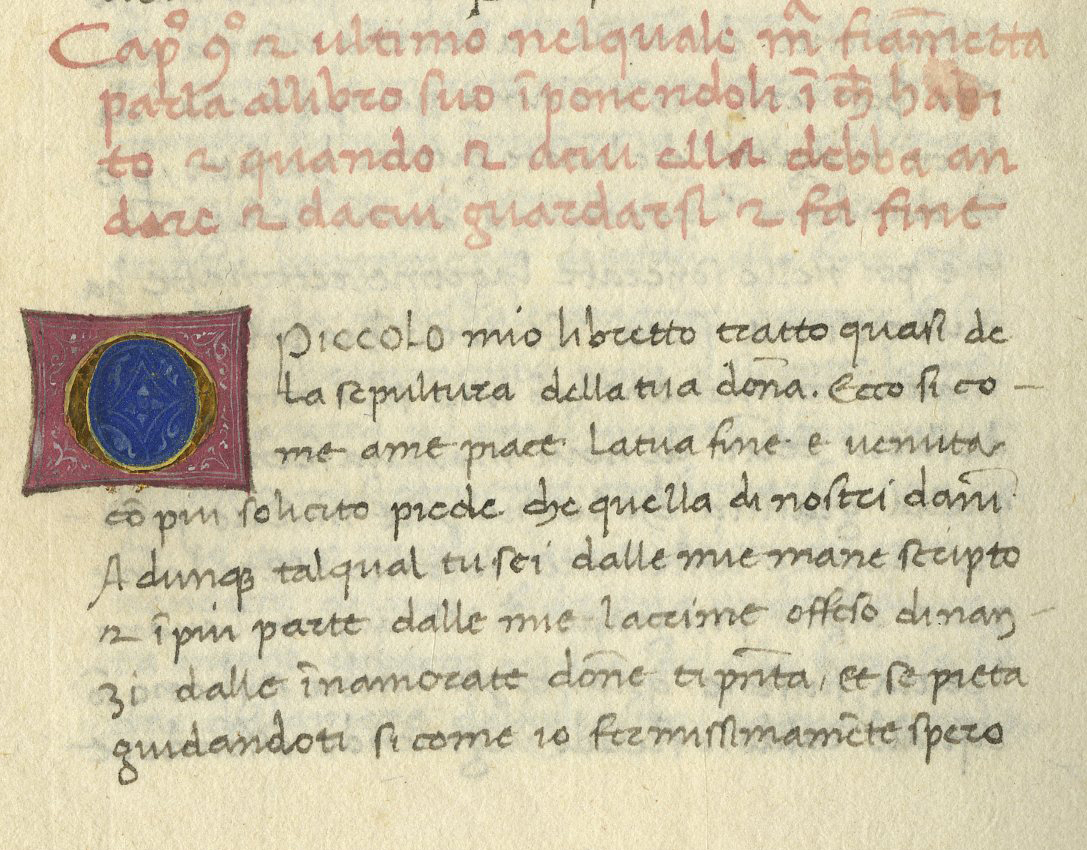 Capº 9º ⁊ ultimo nelquale mᵃ fiam̄etta
parla allibro suo īponendoli ī ch̄ habi
to ⁊ quando ⁊ acui ella debba an
dare ⁊ dacui guardarsi ⁊ fa fine
O PICCOLO mio libretto tratto quasi de
la sepultura della tua don̄a. Ecco si co –
me ame piace latua fine e venuta
cō piu solicito piede che quella di nostri dan̄i
Adunqꝫ tal qual tu sei dalle mie mane scripto
⁊ ī piu parte dalle mie lacrime offeso dinan –
zi dalle īnamorate don̄e ti pn̄ta, et se pieta
guidandoti si come io fermissimamēte spero